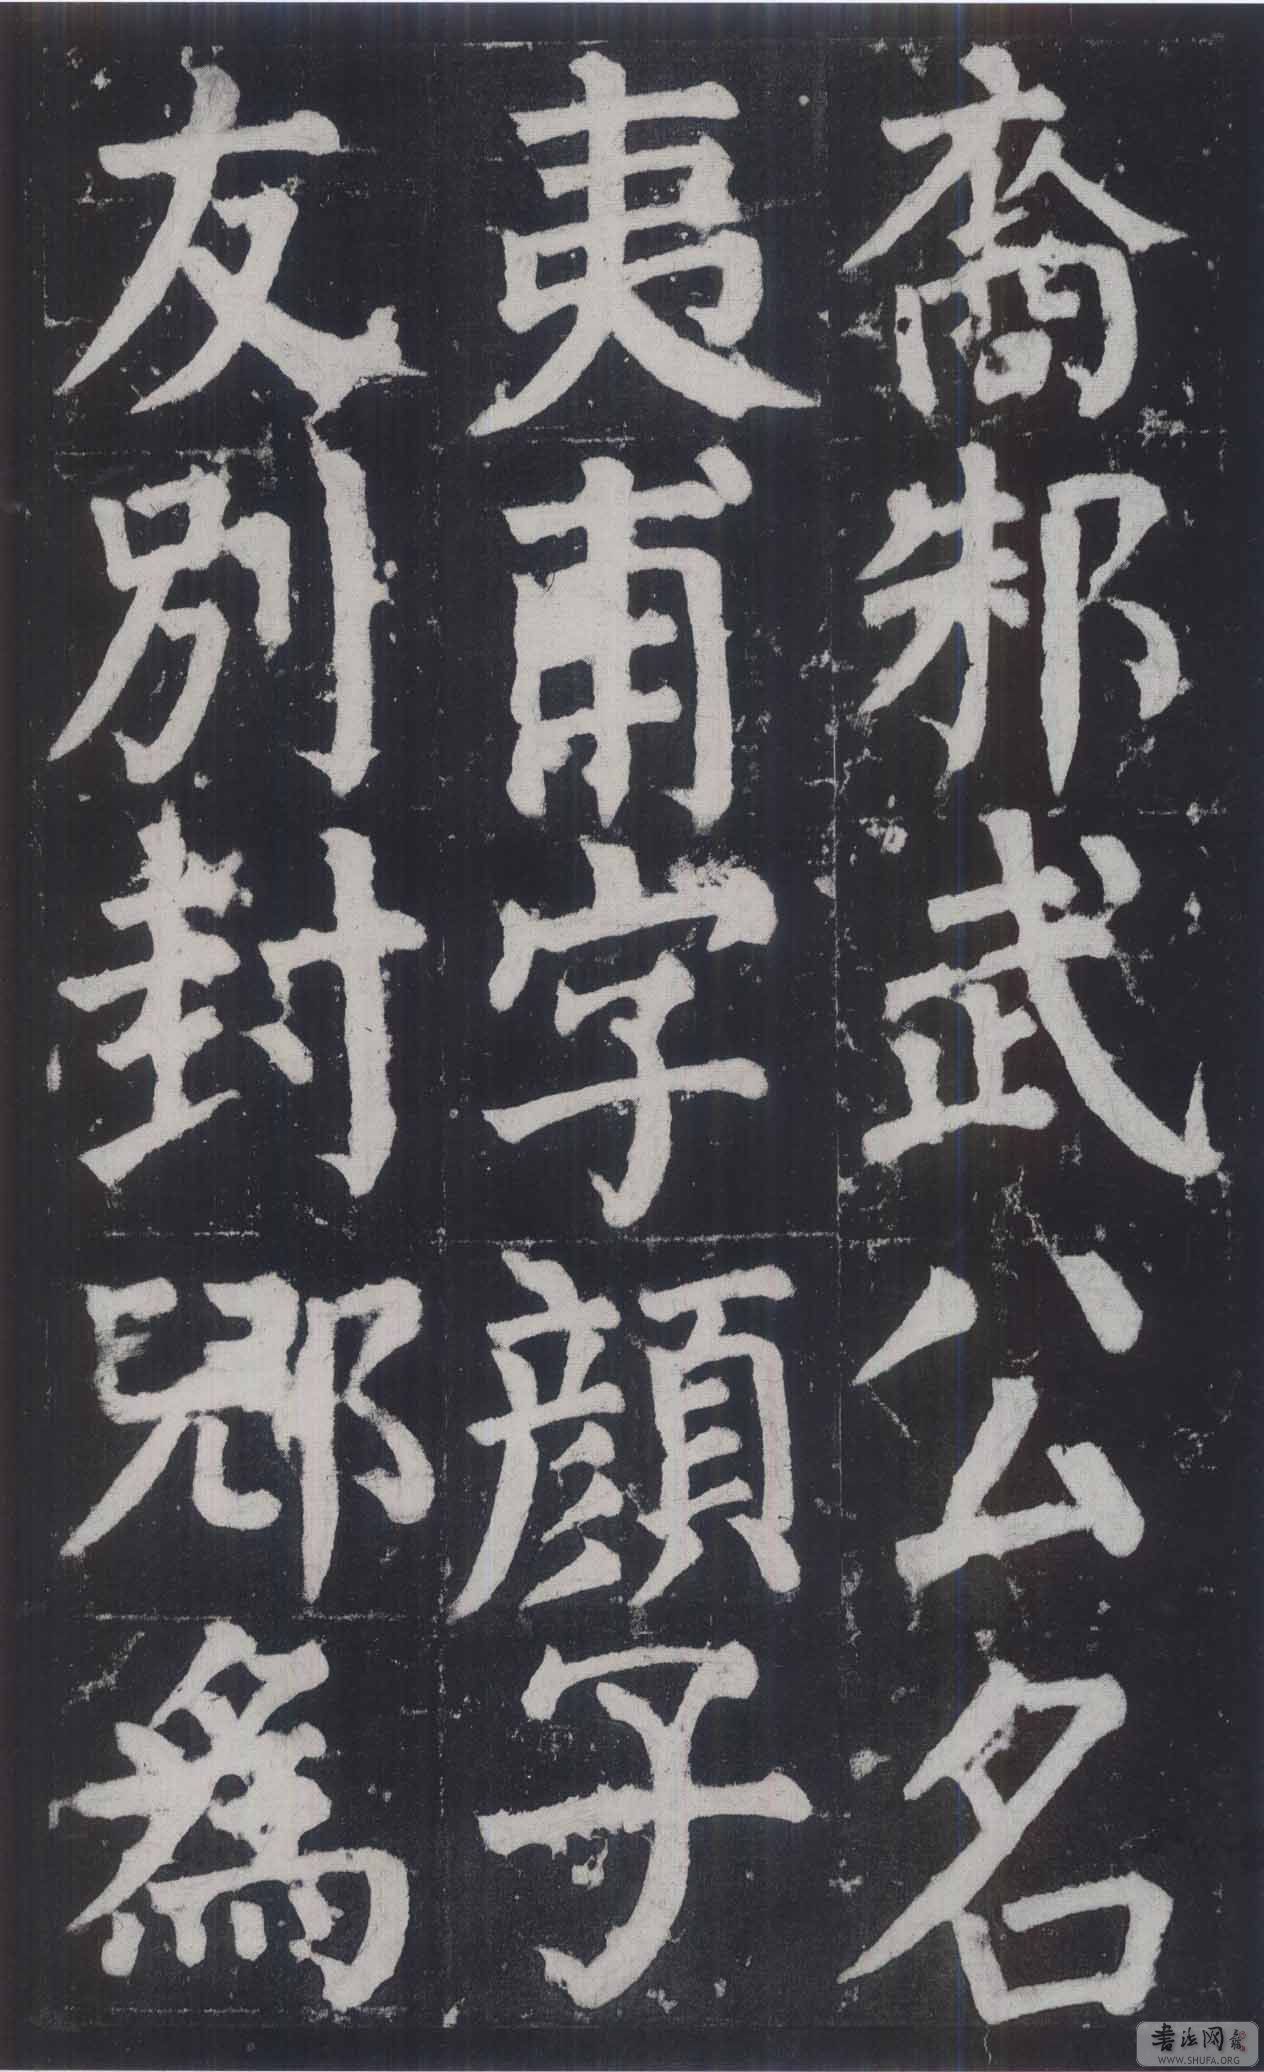 裔邾武公名
夷甫字顔子
友別封郳為
書法网
WWW.SHUFA.ORG